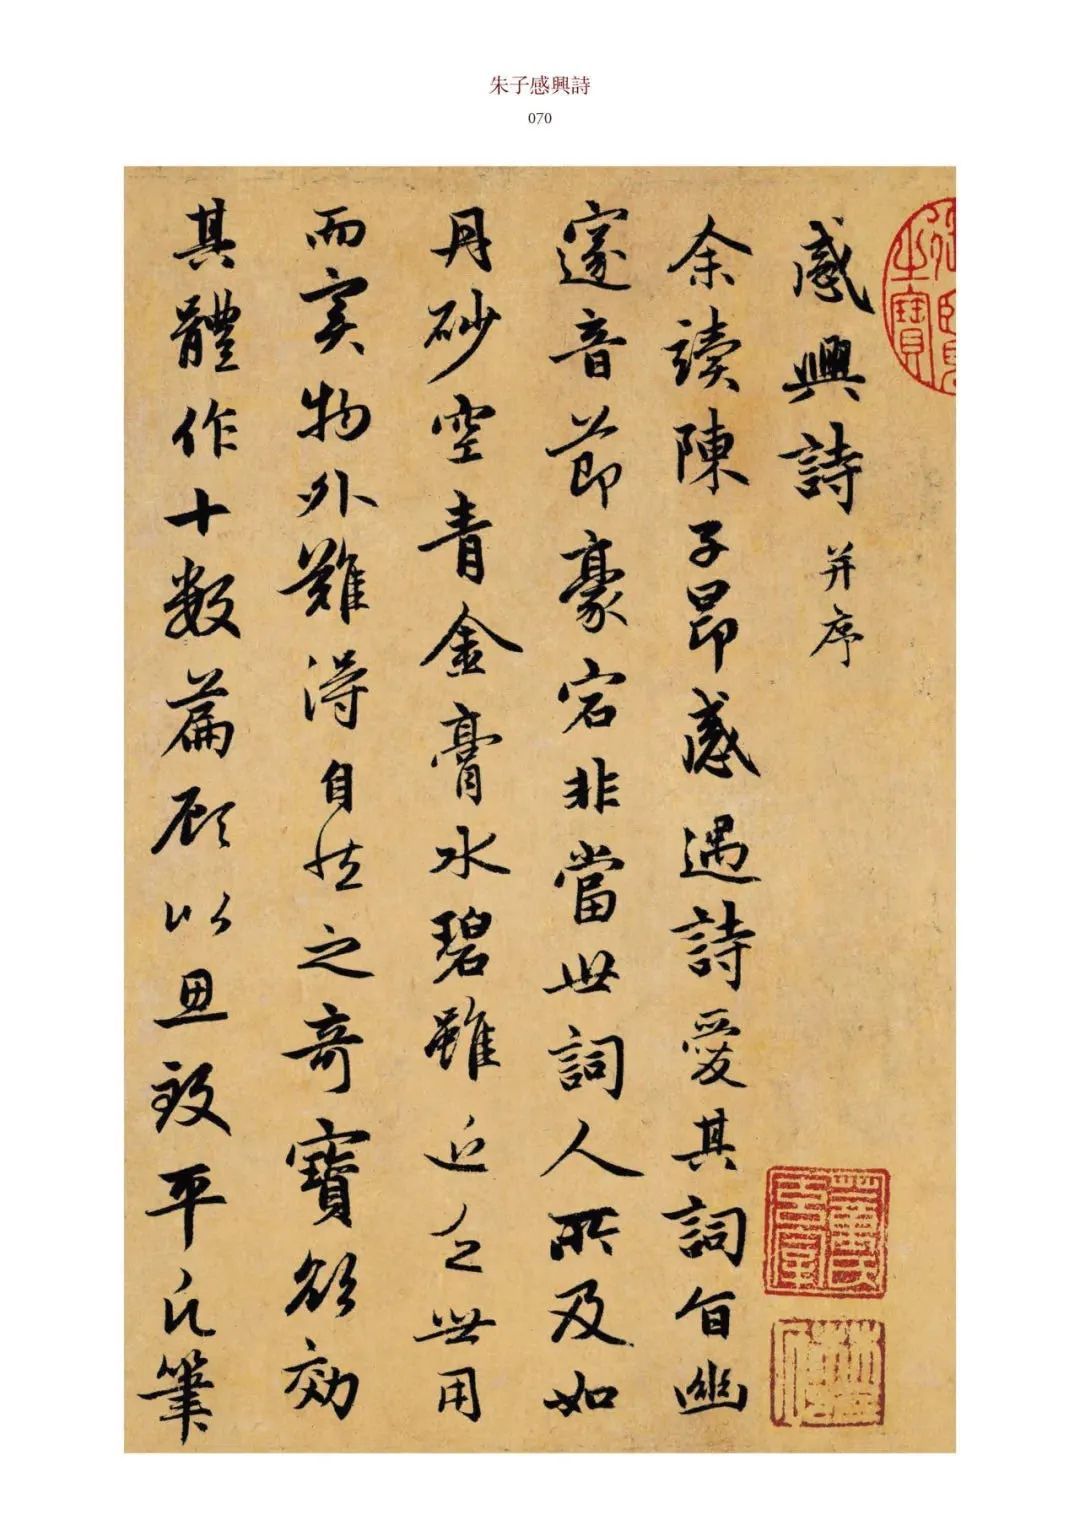 朱子感興詩
070
感興詩并序
余讀陳子昂感遇詩愛其詞旨幽
邃音節豪宕非當世詞人所及如
丹砂空青金膏水碧雖近乏世用
而實物外難得自然之奇寶欲効
其體作十數篇顧以思致平凡筆